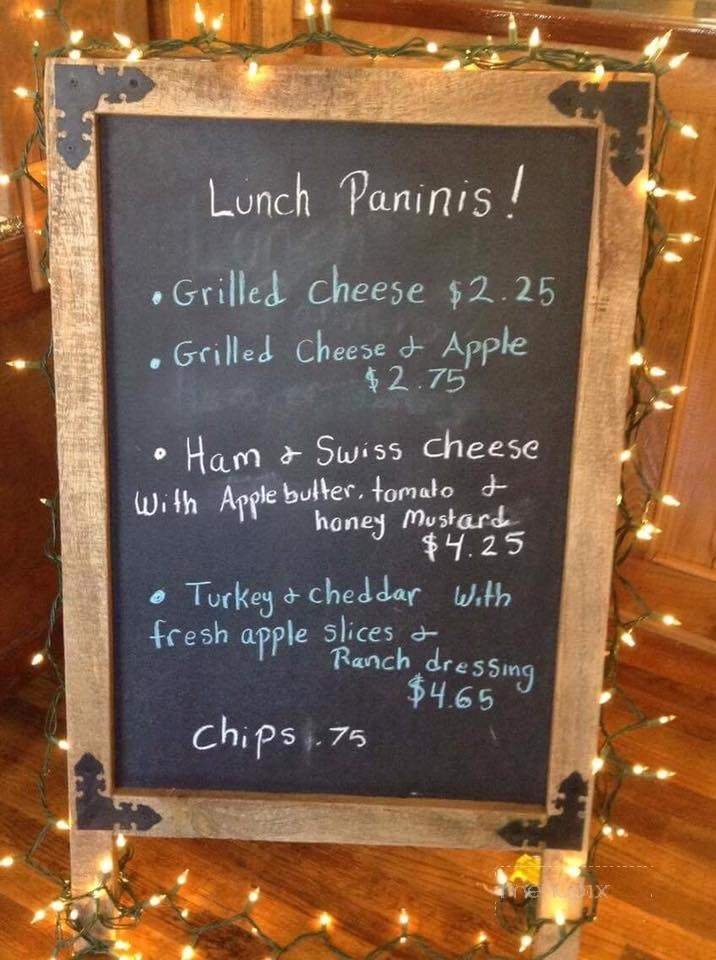 Lunch Paninis!
• Grilled cheese $2.25
• Grilled Cheese & Apple
$2.75
• Ham & Swiss cheese
With Apple butter, tomato &
honey Mustard
$4.25
• Turkey & cheddar With
fresh apple slices &
Ranch dressing
$4.65
Chips .75